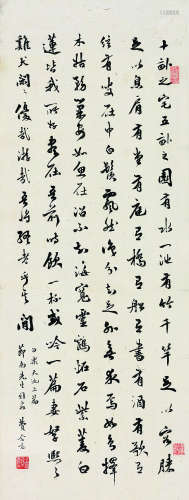 十畝之宅五畝之園有水一池有竹千竿足以容膝
足以息肩有堂有庭有橋有船有書有酒有歌有
弦有叟在中白鬚飄然識分知足外無求焉如鳥擇
木姑務巢安如龜在沼不知海寬靈鶴怪石紫菱白
蓮皆我所好盡在吾前時飲一杯或吟一篇妻孥熙熙
雞犬閒閒優哉游哉吾將終老乎其間
白樂天池上篇
先生雅正